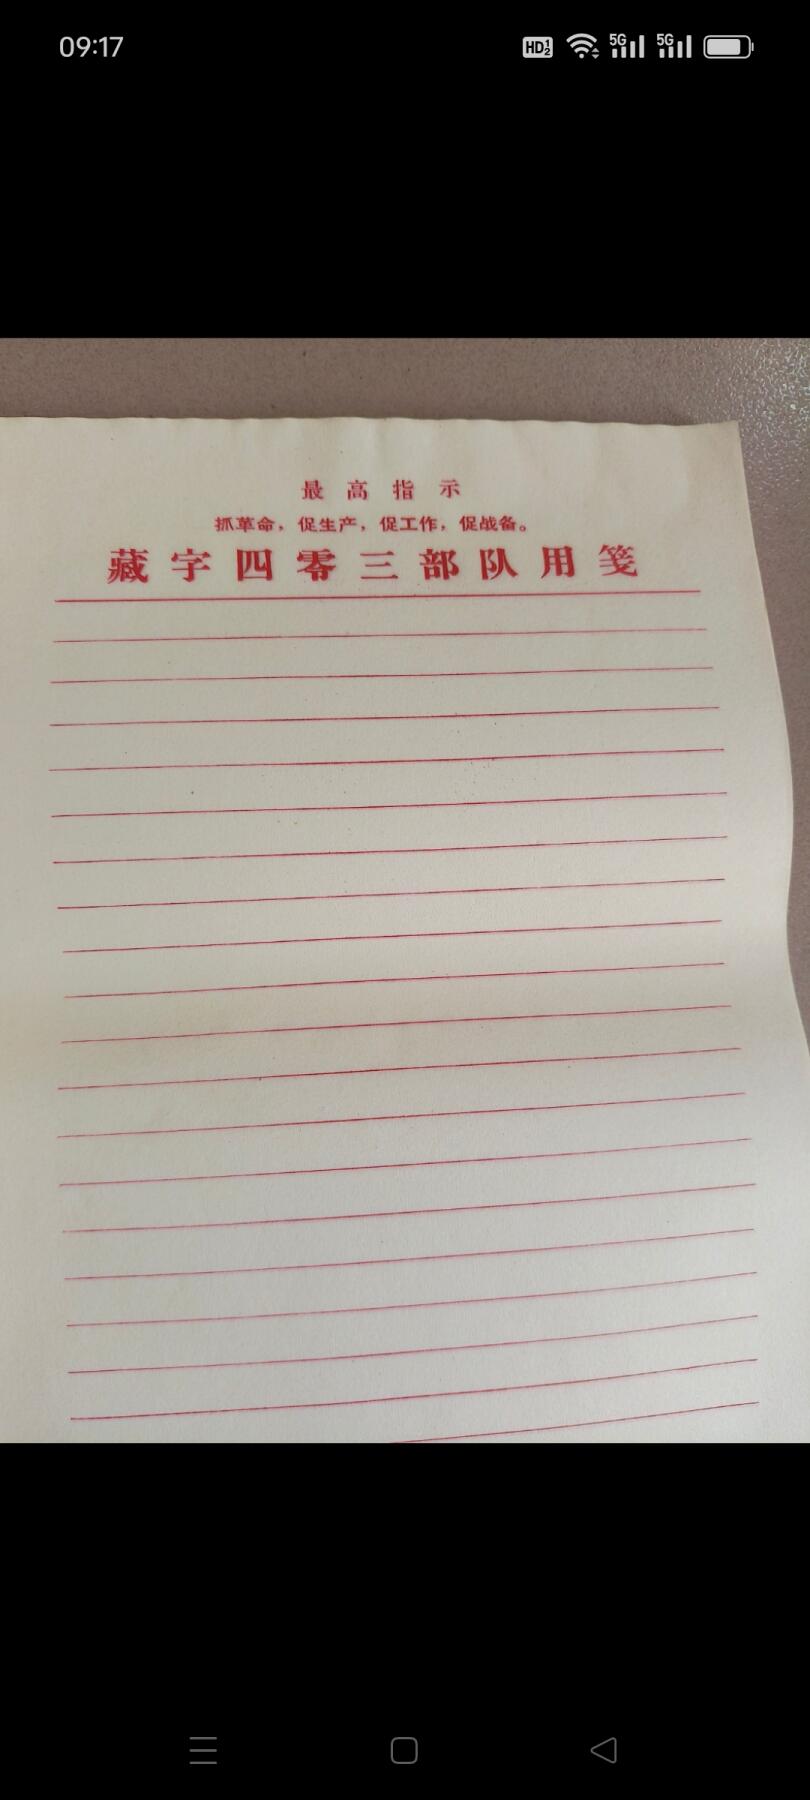 09:17
HD 1 2 5G 5G
最高指示
抓革命，促生产，促工作，促战备。
藏字四零三部队用笺